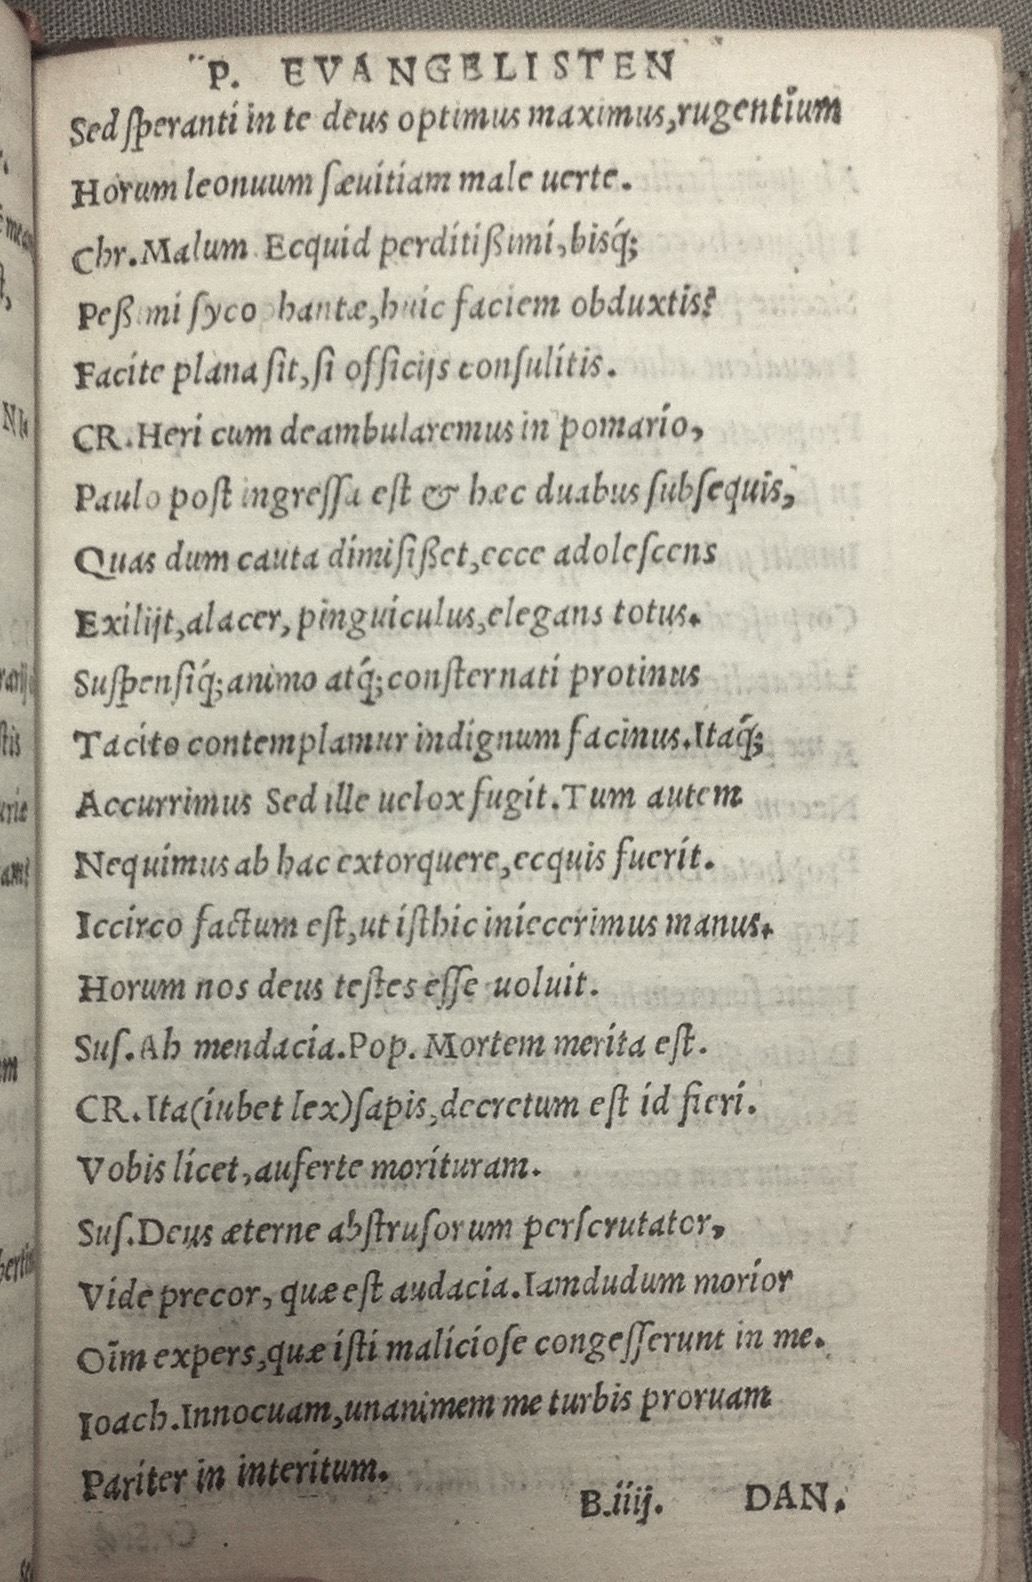 P. EVANGELISTEN
Sed ſperanti in te deus optimus maximus,rugentiũm
Horum leonuum ſæuitiam male uerte.
Chr.Malum Ecquid perditißimi,bisq́;
Peßimi ſyco hantæ,huic faciem obduxtis?
Facite plana ſit,ſi officijs conſulitis.
CR.Heri cum deambularemus in pomario,
Paulo poſt ingreſſa eſt & hæc duabus ſubſequis,
Quas dum cauta dimiſißet,ecce adoleſcens
Exilijt,alacer,pinguiculus,elegans totus.
Suſpenſiq́;animo atq́;conſternati protinus
Tacito contemplamur indignum facinus.Itaq́;
Accurrimus Sed ille uelox fugit.Tum autem
Nequimus ab hac extorquere,ecquis fuerit.
Iccirco factum eſt,ut iſthic iniecerimus manus.
Horum nos deus teſtes eſſe uoluit.
Suſ.Ah mendacia.Pop.Mortem merita eſt.
CR.Ita(iubet lex)ſapis,decretum eſt id fieri.
Vobis licet,auferte morituram.
Suſ.Deus æterne abſtruſorum perſcrutator,
Vide precor,quæ eſt audacia.Iamdudum morior
Oĩm expers,quæ iſti malicioſe congeſſerunt in me.
Ioach.Innocuam,unanimem me turbis proruam
Pariter in interitum.
B.iiij. DAN.